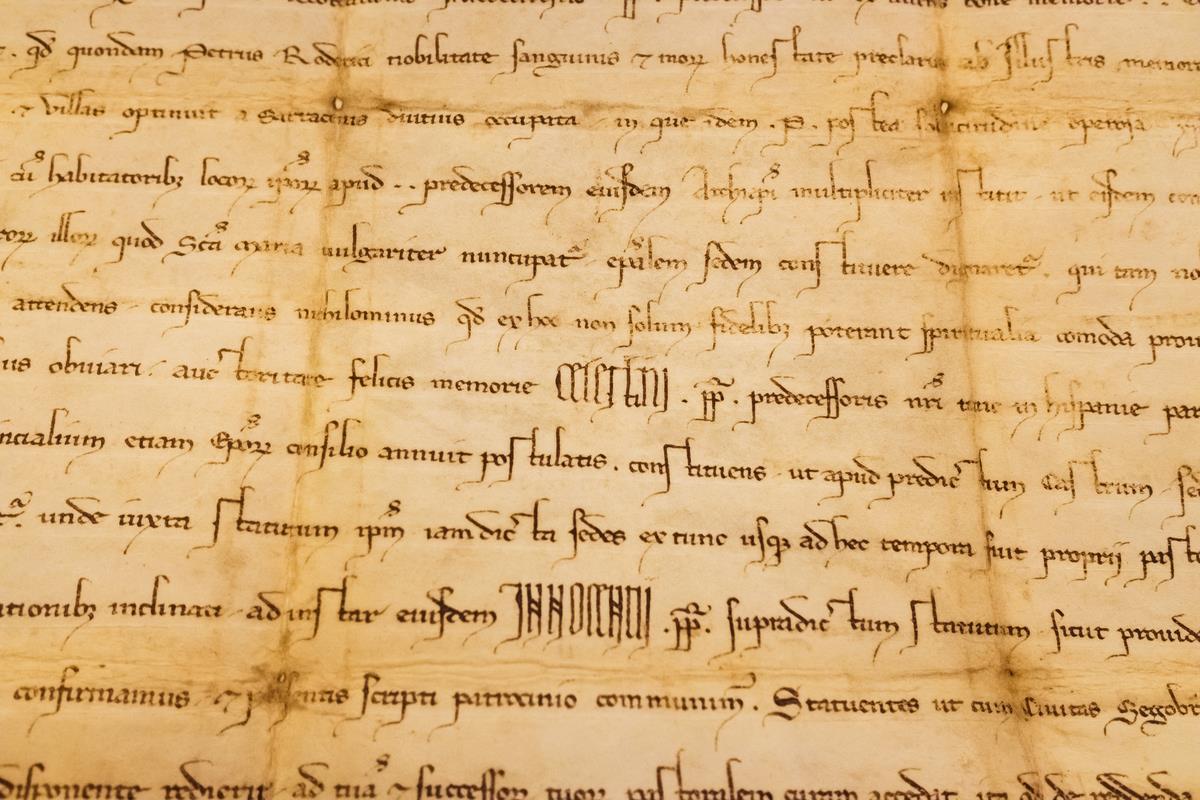 qd quondam Petrus Roderici nobilitate sanguinis ⁊ moꝝ honestate preclarus ab Illustris memor
⁊ villas optinuit a Sarracenis diutius occupata in que idem . P . postea sollicitudine operosa
cū habitatoribꝫ locoꝝ ipoꝝ apud .. predecessorem eiusdem Archiepi multipliciter institit ut eisdem
illoꝝ quod Scā maria uulgariter nuncupat᷑ epalem sedem constituere dignaret᷑ . qui tam no
attendens considerans nichilominus qd ex hoc non solum fidelibꝫ poterant spiritualia comoda prou
us obuiari . auctoritate felicis memorie CELESTINI . pp . predecessoris nr̄i tunc in hispanie par
ncialium etiam Epoꝝ consilio annuit postulatis . constituens ut apud predictum Castrum se
unde iuxta statutum ipm̄ iamdicta sedes ex tunc usqꝫ ad hec tempora fuit proprii pasto
tionibꝫ inclinati ad instar eiusdem INNOCENTII . pp . supradictum statutum sicut prouide
confirmamus ⁊ presentis scripti patrocinio communim᷑ . Statuentes ut cum Ciuitas Segobr
disponente redierit ad tuā ⁊ successoꝝ tuoꝝ pastoralem curam accedat